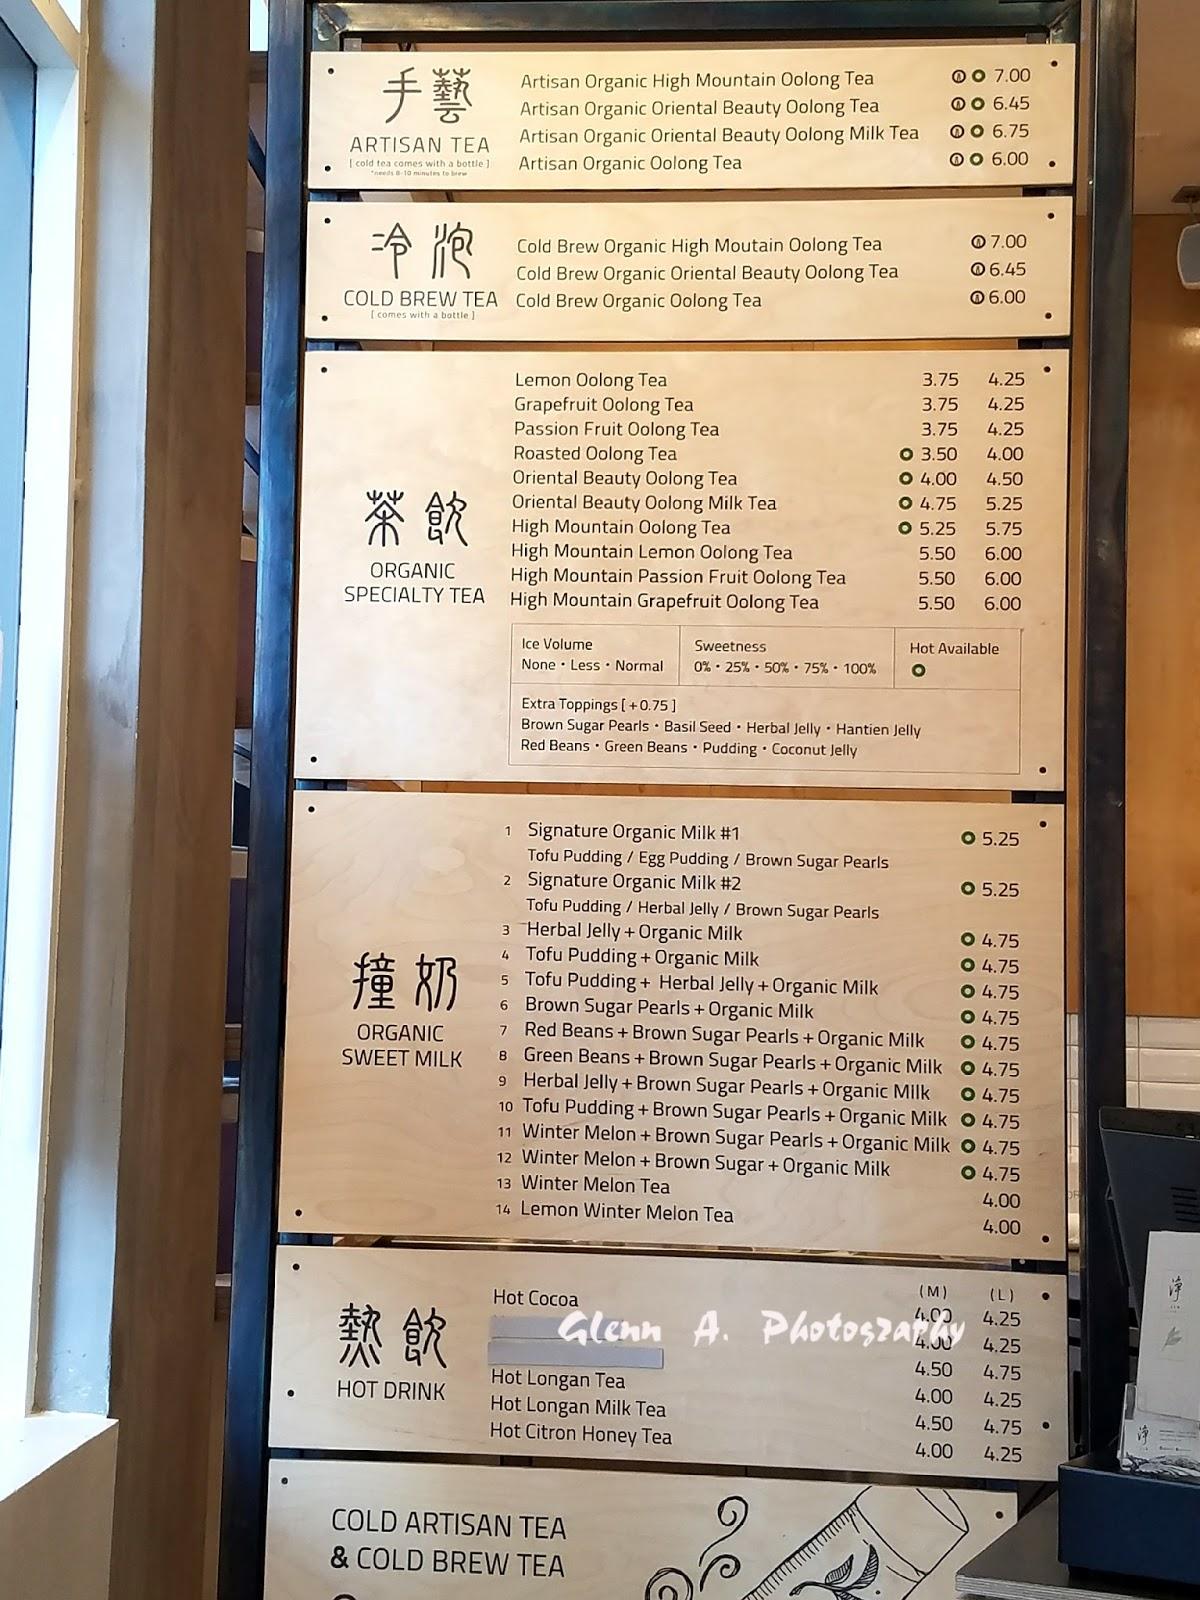 手藝
ARTISAN TEA
[ cold tea comes with a bottle ]
*needs 8-10 minutes to brew
Artisan Organic High Mountain Oolong Tea 7.00
Artisan Organic Oriental Beauty Oolong Tea 6.45
Artisan Organic Oriental Beauty Oolong Milk Tea 6.75
Artisan Organic Oolong Tea 6.00
冷泡
COLD BREW TEA
[ comes with a bottle ]
Cold Brew Organic High Moutain Oolong Tea 7.00
Cold Brew Organic Oriental Beauty Oolong Tea 6.45
Cold Brew Organic Oolong Tea 6.00
茶飲
ORGANIC
SPECIALTY TEA
Lemon Oolong Tea 3.75 4.25
Grapefruit Oolong Tea 3.75 4.25
Passion Fruit Oolong Tea 3.75 4.25
Roasted Oolong Tea 3.50 4.00
Oriental Beauty Oolong Tea 4.00 4.50
Oriental Beauty Oolong Milk Tea 4.75 5.25
High Mountain Oolong Tea 5.25 5.75
High Mountain Lemon Oolong Tea 5.50 6.00
High Mountain Passion Fruit Oolong Tea 5.50 6.00
High Mountain Grapefruit Oolong Tea 5.50 6.00
Ice Volume
None • Less • Normal
Sweetness
0% • 25% • 50% • 75% • 100%
Hot Available
Extra Toppings [ +0.75 ]
Brown Sugar Pearls • Basil Seed • Herbal Jelly • Hantien Jelly
Red Beans • Green Beans • Pudding • Coconut Jelly
撞奶
ORGANIC
SWEET MILK
1 Signature Organic Milk #1 5.25
Tofu Pudding / Egg Pudding / Brown Sugar Pearls
2 Signature Organic Milk #2 5.25
Tofu Pudding / Herbal Jelly / Brown Sugar Pearls
3 Herbal Jelly + Organic Milk 4.75
4 Tofu Pudding + Organic Milk 4.75
5 Tofu Pudding + Herbal Jelly + Organic Milk 4.75
6 Brown Sugar Pearls + Organic Milk 4.75
7 Red Beans + Brown Sugar Pearls + Organic Milk 4.75
8 Green Beans + Brown Sugar Pearls + Organic Milk 4.75
9 Herbal Jelly + Brown Sugar Pearls + Organic MIlk 4.75
10 Tofu Pudding + Brown Sugar Pearls + Organic Milk 4.75
11 Winter Melon + Brown Sugar Pearls + Organic Milk 4.75
12 Winter Melon + Brown Sugar + Organic Milk 4.75
13 Winter Melon Tea 4.00
14 Lemon Winter Melon Tea 4.00
熱飲
HOT DRINK
(M) (L)
Hot Cocoa 4.00 4.25
4.00 4.25
4.50 4.75
Hot Longan Tea 4.00 4.25
Hot Longan Milk Tea 4.50 4.75
Hot Citron Honey Tea 4.00 4.25
Glenn A. Photography
COLD ARTISAN TEA
& COLD BREW TEA
淨
淨